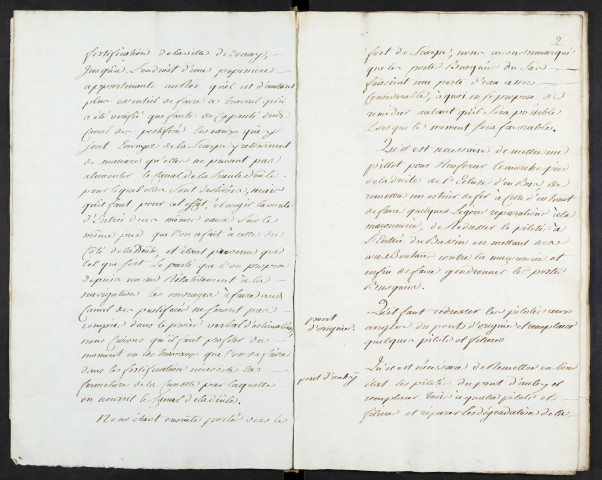 fortification de la ville de douay,
Jusqu'à l'endroit d'une pepiniere
appartenante au Roi qu'il est d'autant
plus essentiel de faire ce travail qu'il
a été verifié que faute de capacité du dit
Canal des pestiférés les eaux qui y
sont Envoyées de la Scarpe y retiennent
de maniere qu'elles ne peuvent pas
alimenter le Canal de la haute Deule
pour lequel elles sont destinées; mais
qu'il faut, pour cet effet, élargir la vanne
d'Entrée de ces mêmes eaux sur le
même pied que l'on a fait à celle du
Côté de la Deule et étant prevenus que
tel que soit le parti que l'on propose
depuis un an relativement à la
navigation les ouvrages à faire au dit
Canal des pestiférés ne seront pas
compris dans le procès verbal d'estimation,
nous Croyons qu'il faut profiter du
moment où les travaux que l'on va faire
dans les fortifications necessite la
fermeture de la Cunette par laquelle
on nourrit le Canal de la deule.
Nous étant ensuite portés vers le
2
fort de Scarpe, nous avons remarqué
que les porte Busquées du Sas
faisoient une perte d'eau assez
Considerable, à quoi on se propose de
remedier autant qu'il sera possible
lorsque le moment sera favorable.
Qu'il est necessaire de mettre un
pillot pour Renforcer le marche pied
de la droite de l'Ecluse d'en Bas de
remettre un etrier de fer à Celle d'en haut
de faire quelques Legeres reparations à la
maçonnerie, de Redresser le pilotis à
l'Entrée du Bassin en mettant des
contre la maçonnerie et
enfin de faire goudronner les portes
Busquées.
pont
d'origniés.
Qu'il faut redresser les pilotis aux
angles du pont d'orignie et remplacer
quelques pilots et filieres
pont d'auby
Qu'il est nécessaire de Remettre en bon
état les pilotis du pont d'auby et
remplacer trois à quatre pilots et
filieres et réparer les dégradations de la